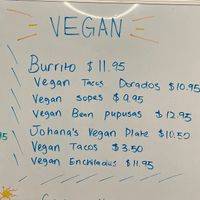 VEGAN
Burrito $11.95
Vegan Tacos Dorados $10.95
Vegan sopes $9.95
Vegan Bean pupusas $12.95
Johana's Vegan Plate $10.50
Vegan Tacos $3.50
Vegan Enchiladas $11.95